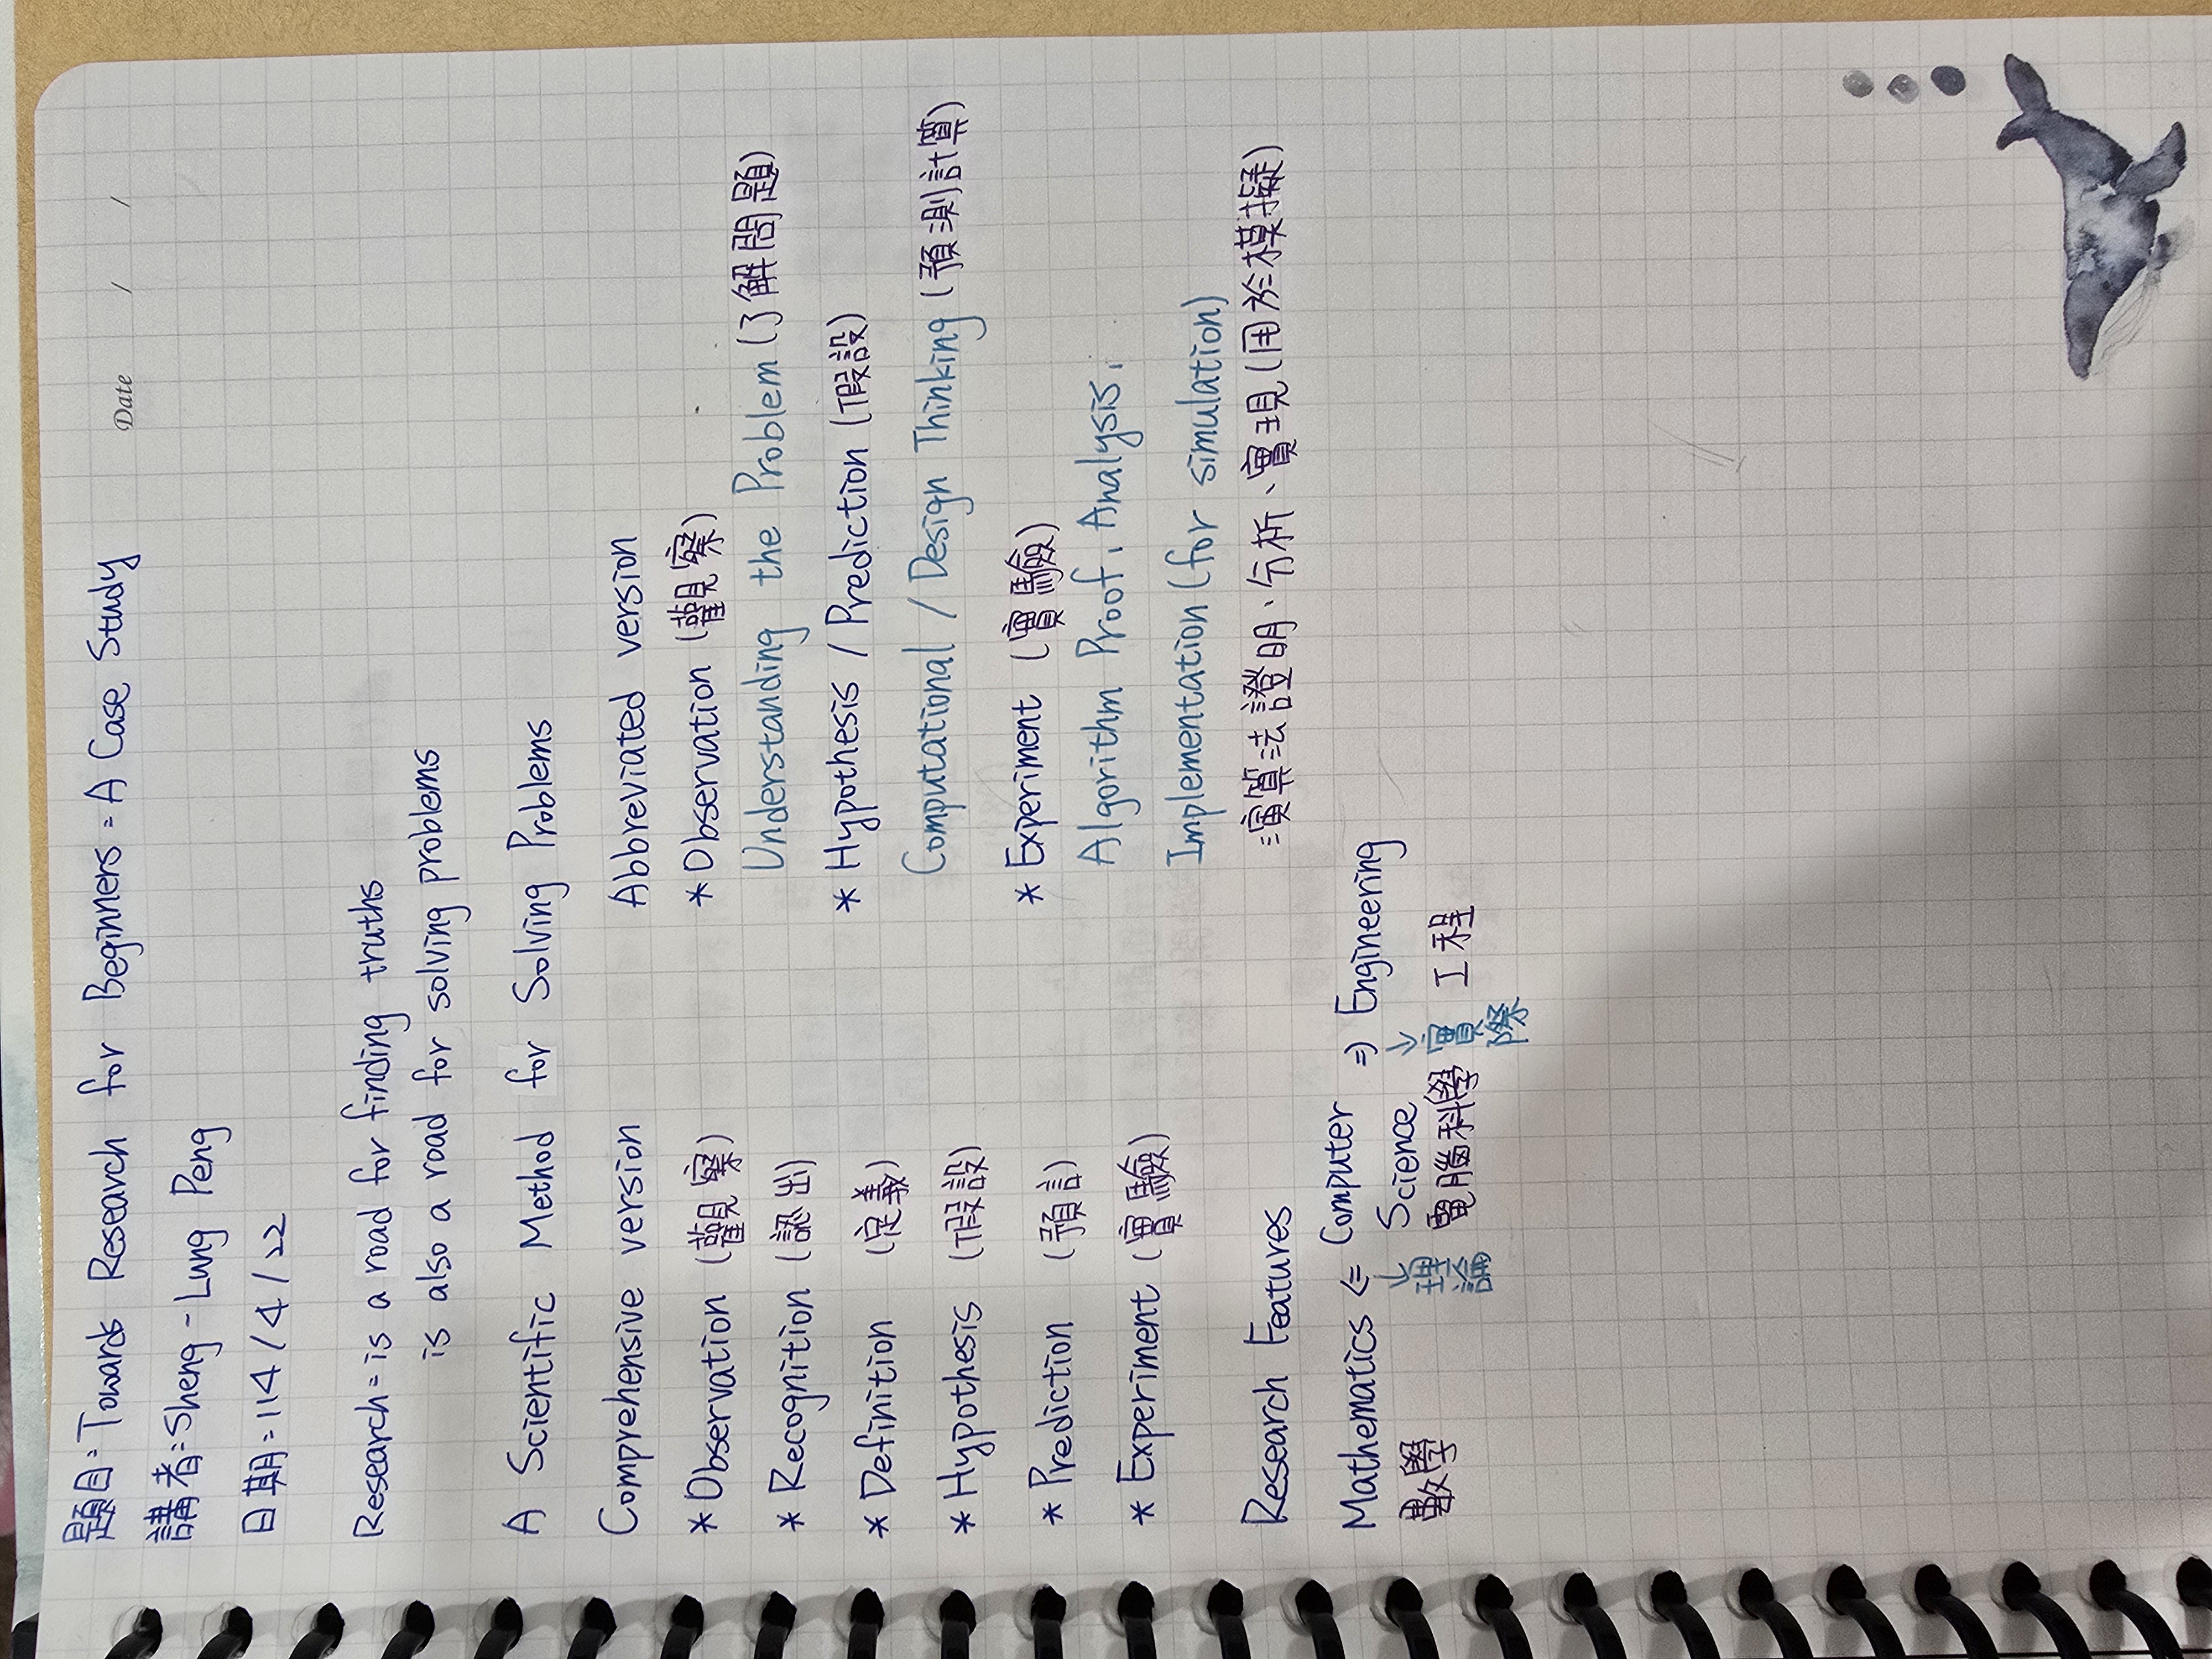 題目: Towards Research for Beginners: A Case Study
Date / /
講者: Sheng-Lung Peng
日期: 114/4/22
Research: is a road for finding truths
is also a road for solving problems
A Scientific Method for Solving Problems
Comprehensive version
* Observation (觀察)
* Recognition (認出)
* Definition (定義)
* Hypothesis (假設)
* Prediction (預言)
* Experiment (實驗)
Abbreviated version
* Observation (觀察)
Understanding the Problem (了解問題)
* Hypothesis / Prediction (假設)
Computational / Design Thinking (預測計算)
* Experiment (實驗)
Algorithm Proof, Analysis,
Implementation (for simulation)
演算法證明、分析、實現(用於模擬)
Research Features
Mathematics ⇐ Computer Science ⇒ Engineering
↓ ↓
數學 理論 電腦科學 實際 工程